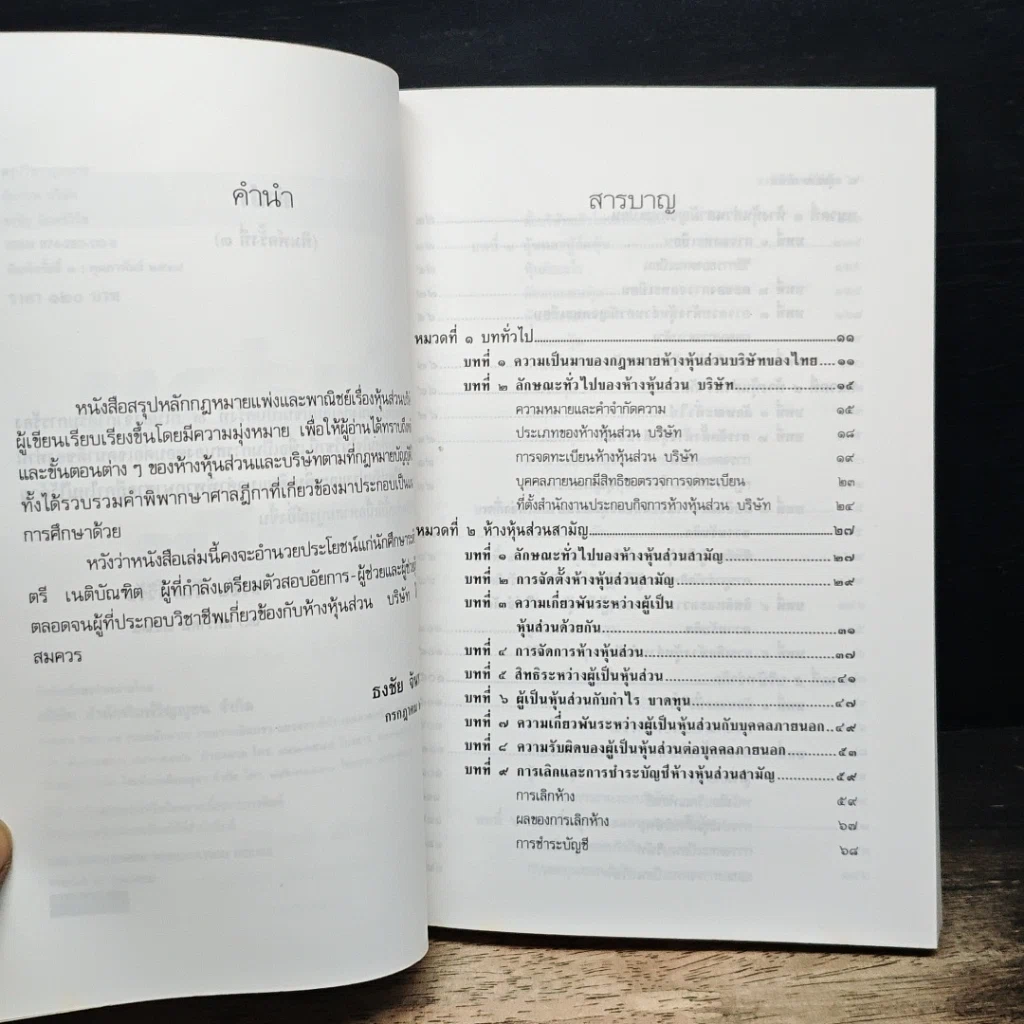 คำนำ
หนังสือสรุปหลักกฎหมายแพ่งและพาณิชย์เรื่องหุ้นส่วนบริ
ผู้เขียนเรียบเรียงขึ้นโดยมีความมุ่งหมาย เพื่อให้ผู้อ่านได้ทราบถึง
และขั้นตอนต่าง ๆ ของห้างหุ้นส่วนและบริษัทตามที่กฎหมายบัญญัติ
ทั้งได้รวบรวมคำพิพากษาศาลฎีกาที่เกี่ยวข้องมาประกอบเป็น
การศึกษาด้วย
หวังว่าหนังสือเล่มนี้คงจะอำนวยประโยชน์แก่นักศึกษา
ตรี เนติบัณฑิต ผู้ที่กำลังเตรียมตัวสอบอัยการ-ผู้ช่วยและผู้ช่วย
ตลอดจนผู้ที่ประกอบวิชาชีพเกี่ยวข้องกับห้างหุ้นส่วน บริษัท
สมควร
ธงชัย
กรกฎาคม
สารบาญ
หมวดที่ ๑ บททั่วไป....๑๑
บทที่ ๑ ความเป็นมาของกฎหมายห้างหุ้นส่วนบริษัทของไทย....๑๑
บทที่ ๒ ลักษณะทั่วไปของห้างหุ้นส่วน บริษัท....๑๕
ความหมายและคำจำกัดความ ๑๕
ประเภทของห้างหุ้นส่วน บริษัท ๑๘
การจดทะเบียนห้างหุ้นส่วน บริษัท ๑๙
บุคคลภายนอกมีสิทธิขอตรวจการจดทะเบียน ๒๓
ที่ตั้งสำนักงานประกอบกิจการห้างหุ้นส่วน บริษัท ๒๔
หมวดที่ ๒ ห้างหุ้นส่วนสามัญ....๒๗
บทที่ ๑ ลักษณะทั่วไปของห้างหุ้นส่วนสามัญ....๒๗
บทที่ ๒ การจัดตั้งห้างหุ้นส่วนสามัญ....๒๙
บทที่ ๓ ความเกี่ยวพันระหว่างผู้เป็น
หุ้นส่วนด้วยกัน....๓๑
บทที่ ๔ การจัดการห้างหุ้นส่วน....๓๗
บทที่ ๕ สิทธิระหว่างผู้เป็นหุ้นส่วน....๔๑
บทที่ ๖ ผู้เป็นหุ้นส่วนกับกำไร ขาดทุน....๔๗
บทที่ ๗ ความเกี่ยวพันระหว่างผู้เป็นหุ้นส่วนกับบุคคลภายนอก..๔๙
บทที่ ๘ ความรับผิดของผู้เป็นหุ้นส่วนต่อบุคคลภายนอก....๕๓
บทที่ ๙ การเลิกและการชำระบัญชีห้างหุ้นส่วนสามัญ....๕๙
การเลิกห้าง ๕๙
ผลของการเลิกห้าง ๖๗
การชำระบัญชี ๖๘